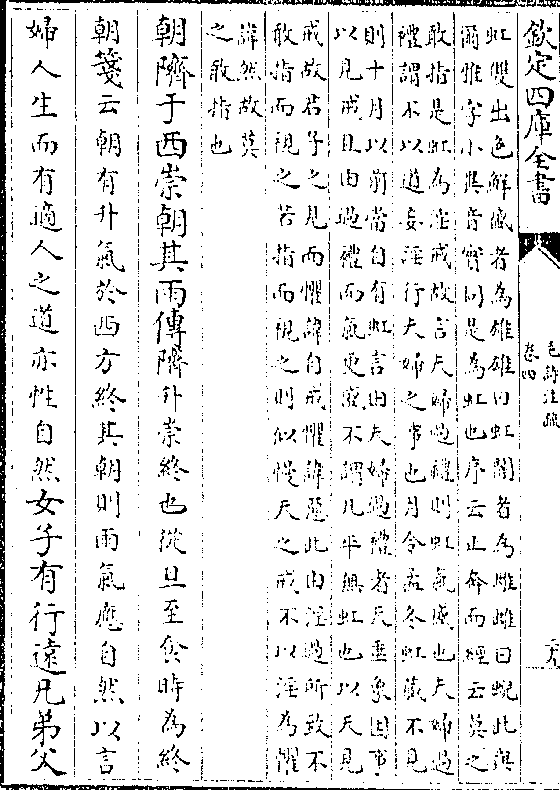 欽定四庫全書
毛詩注疏
卷四
虹雙出色鮮盛者為雄雄曰虹闇者為雌雌曰蜺此與
爾雅字小異音實同是為虹也序云止奔而經云莫之
敢指是虹為淫戒故言夫婦過禮則虹氣盛也夫婦過
禮謂不以道妄淫行夫婦之事也月令孟冬虹藏不見
則十月以前當自有虹言由夫婦過禮者天垂象因事
以見戒且由過禮而氣更盛不謂凡平無虹也以天見
戒故君子之見而懼諱自戒懼諱惡此由淫過所致不
敢指而視之若指而視之則似慢天之戒不以淫為懼
諱然故莫
之敢指也
朝隮于西崇朝其雨傳隮升崇終也從旦至食時為終
朝箋云朝有升氣於西方終其朝則雨氣應自然以言
婦人生而有適人之道亦性自然女子有行遠兄弟父